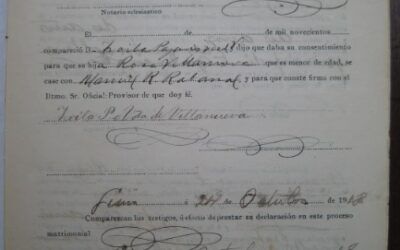 Notario eclesiástico
de mil novecientos
compareció D. Zoila dijo que daba su consentimiento
para que su hija Rosa Villanueva que es menor de edad, se
case con Manuel R. Rabanal y para que conste firmo con el
Iltmo. Sr. Oficial Provisor de que doy fé.
Zoila P. Vda de Villanueva
Lima a 24 de Octubre de 19
Comparecen los testigos, á efecto de prestar su declaración en este proceso
matrimonial